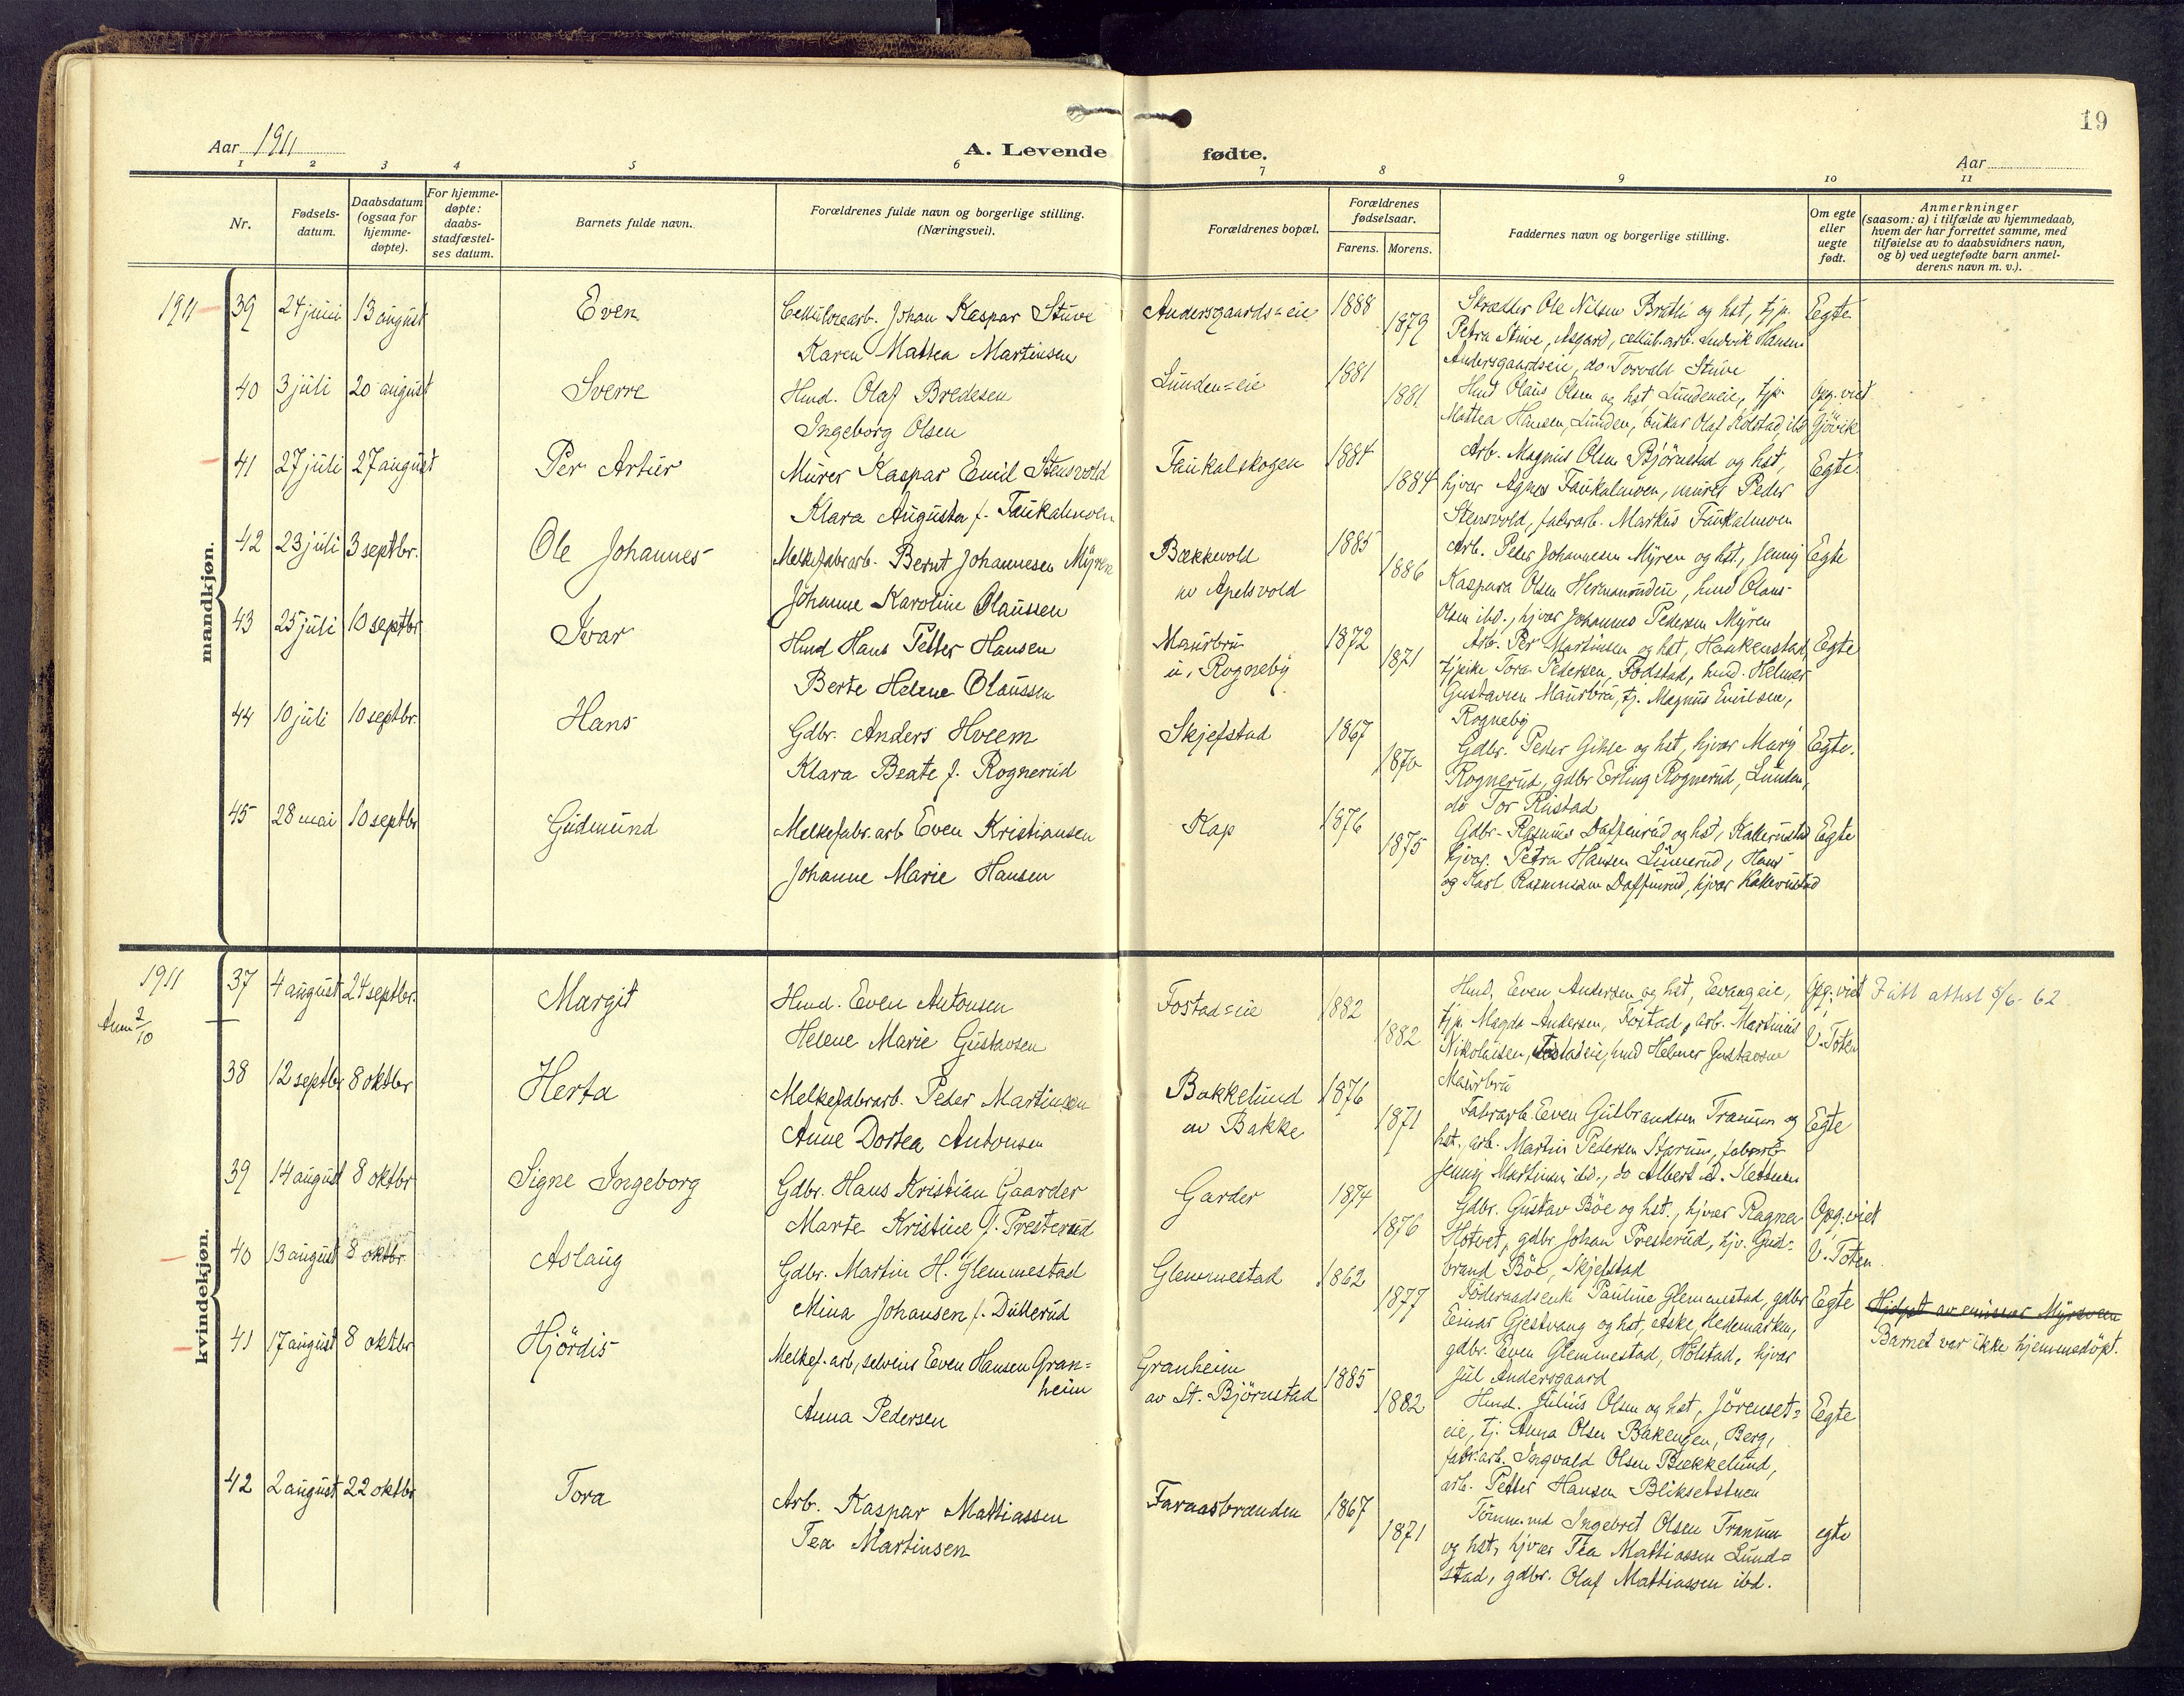 19
Aar 1911
A. Levende fødte.
Aar
1 2 3 4 5 6 7 8 9 10 11
Nr.
Fødsels-
datum.
Daabsdatum
(ogsaa for
hjemme-
døpte).
For hjemme-
døpte:
daabs-
stadfæstel-
ses datum.
Barnets fulde navn.
Forældrenes fulde navn og borgerlige stilling.
(Næringsvei).
Forældrenes bopæl.
Forældrenes
fødselsaar.
Farens. Morens.
Faddernes navn og borgerlige stilling.
Om egte
eller
uegte
født.
Anmerkninger
(saasom: a) i tilfælde av hjemmedaab,
hvem der har forrettet samme, med
tilføielse av to daabsvidners navn,
og b) ved uegtefødte barn anmel-
derens navn m. v.).
mandkjøn.
1911 39 24 juni 13 august Even
Cellulosearb. Johan Kaspar Stuve
Karen Mattea Martinsen
Andersgaards=eie 1888 1879
Skrædder Ole Nilsen Bråti og hst, tjp.
Petra Stuve, Asgard, cellul.arb. Ludvik Hansen
Andersgaardseie, do Torvald Stuve
Egte
40 3 juli 20 august Sverre
Hmd. Olaf Bredesen
Ingeborg Olsen
Lunden=eie 1881 1881
Hmd Olaus Olsen og hst Lundeneie, tjp.
Mattea Hansen, Lunden, Olaf Kolstad ibd
Opg. viet
Gjövik
41 27 juli 27 august Per Artur
Murer Kaspar Emil Stensvold
Klara Augusta f. Faukalmoen
Faukalskogen 1884 1884
Arb. Magnus Olsen Björnstad og hst,
hjvær Agnes Faukalmoen, murer Peder
Stensvold, fabrarb. Markus Faukalmoen
Egte
42 23 juli 3 septbr. Ole Johannes
Melkefabrarb. Bernt Johannesen Myren
Johanne Karoline Olaussen
Bækkevold
av Apelsvold 1885 1886
Arb. Peder Johannesen Myren og hst, Jenny
Kaspara Olsen Hermanrudeie, hmd Olaus
Olsen ibd., hjvær Johannes Pedersen Myren
Egte
43 25 juli 10 septbr Ivar
Hmd Hans Petter Hansen
Berte Helene Olaussen
Maurbru
u. Rogneby 1872 1871
Arb. Per Martinsen og hst, Haukenstad,
tjpike Tora Pedersen, Fodstad, hmd. Helmer
Gustavsen Maurbru, tj. Magnus Emilsen,
Rogneby
Egte
44 10 juli 10 septbr. Hans
Gdbr. Anders Hveem
Klara Beate f. Rognerud
Skjefstad 1867 1870
Gdbr. Peder Gihle og hst, hjvær Mary
Rognerud, gdbr Erling Rognerud, Lunden,
do Tor Rustad
Egte.
45 28 mai 10 septbr Gudmund
Melkefabr.arb Even Kristiansen
Johanne Marie Hansen
Kap 1876 1875
Gdbr. Rasmus Daffinrud og hst, Kallerustad
hjvær. Petra Hansen Linnerud, Hans
og Karl Rasmussen Daffinrud, hjvær Kallerustad
Egte
kvindekjøn.
1911
Anm 2/10
37 4 august 24 septbr. Margit
Hmd. Even Antonsen
Helene Marie Gustavsen
Fostad=eie 1882 1882
Hmd, Even Andersen og hst, Eevangeie,
tjp. Magda Andersen, Fostad, arb. Martinius
Nikolaisen, Fostadeie, hmd Helmer Gustavsen
Maurbru
Opg. viet
V. Toten
Fått attest 5/6-62
38 12 septbr 8 oktbr Herta
Melkefabrarb. Peder Martinsen
Anne Dortea Antonsen
Bakkelund
av Bakke 1876 1871
Fabrarb. Even Gulbrandsen Tranum og
hst., arb. Martin Pedersen Starum, fabrarb
Jenny Martinsen ibd., do Albert
Egte
39 14 august 8 oktbr Signe Ingeborg
Gdbr. Hans Kristian Gaarder
Marte Kristine f. Presterud
Garder 1874 1876
Gdbr. Gustav Böe og hst., hjvær Ragna
Hotvet, gdbr Johan Presterud, hjv. Gud=
brand Böe, Skjefstad
Opg. viet
V. Toten
40 13 august 8 oktbr. Aslaug
Gdbr. Martin H. Glemmestad
Mina Johansen f. Dullerud
Glemmestad 1862 1877
Föderaadsenke Pauline Glemmestad, gdbr
Einar Gjestvang og hst, Aske, Hedemarken,
gdbr. Even Glemmestad, Holstad, hjvær
Jul Andersgaard
Egte
Hjdpt av emissær Myrsveen
Barnet var ikke hjemmedöpt.
41 17 august 8 oktbr Hjördis
Melkef.arb, selveier Even Hansen Gran=
heim
Anna Pedersen
Granheim
av St. Björnstad 1885 1882
Hmd. Julius Olsen og hst, Jörenset=
eie, tj. Anna Olsen Bakengen, Berg,
fabr.arb. Ingvald Olsen Bækkelund,
arb. Petter Hansen Bliksetstuen
Egte
42 2 august 22 oktbr Tora
Arb. Kaspar Mattiassen
Tea Martinsen
Faraasbraenden 1867 1871
Tömm.md Ingebret Olsen Tranum
og hst, hjvær Tea Mattiassen Lund=
stad, gdbr. Olaf Mattiassen ibd.
egte